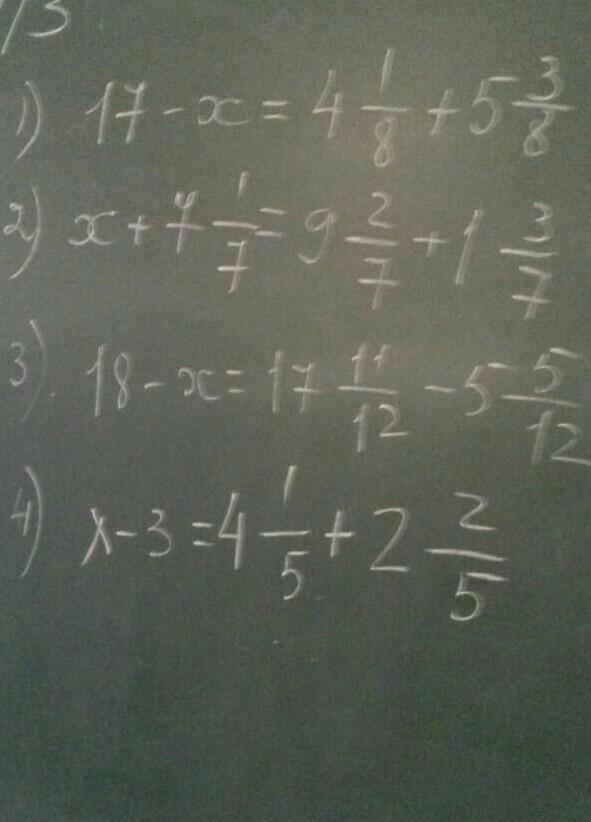 /3
1) 17 - x = 4 1/8 + 5 3/8
2) x + 7 1/7 = 9 2/7 + 1 3/7
3). 18 - x = 17 11/12 - 5 5/12
4) x - 3 = 4 1/5 + 2 2/5